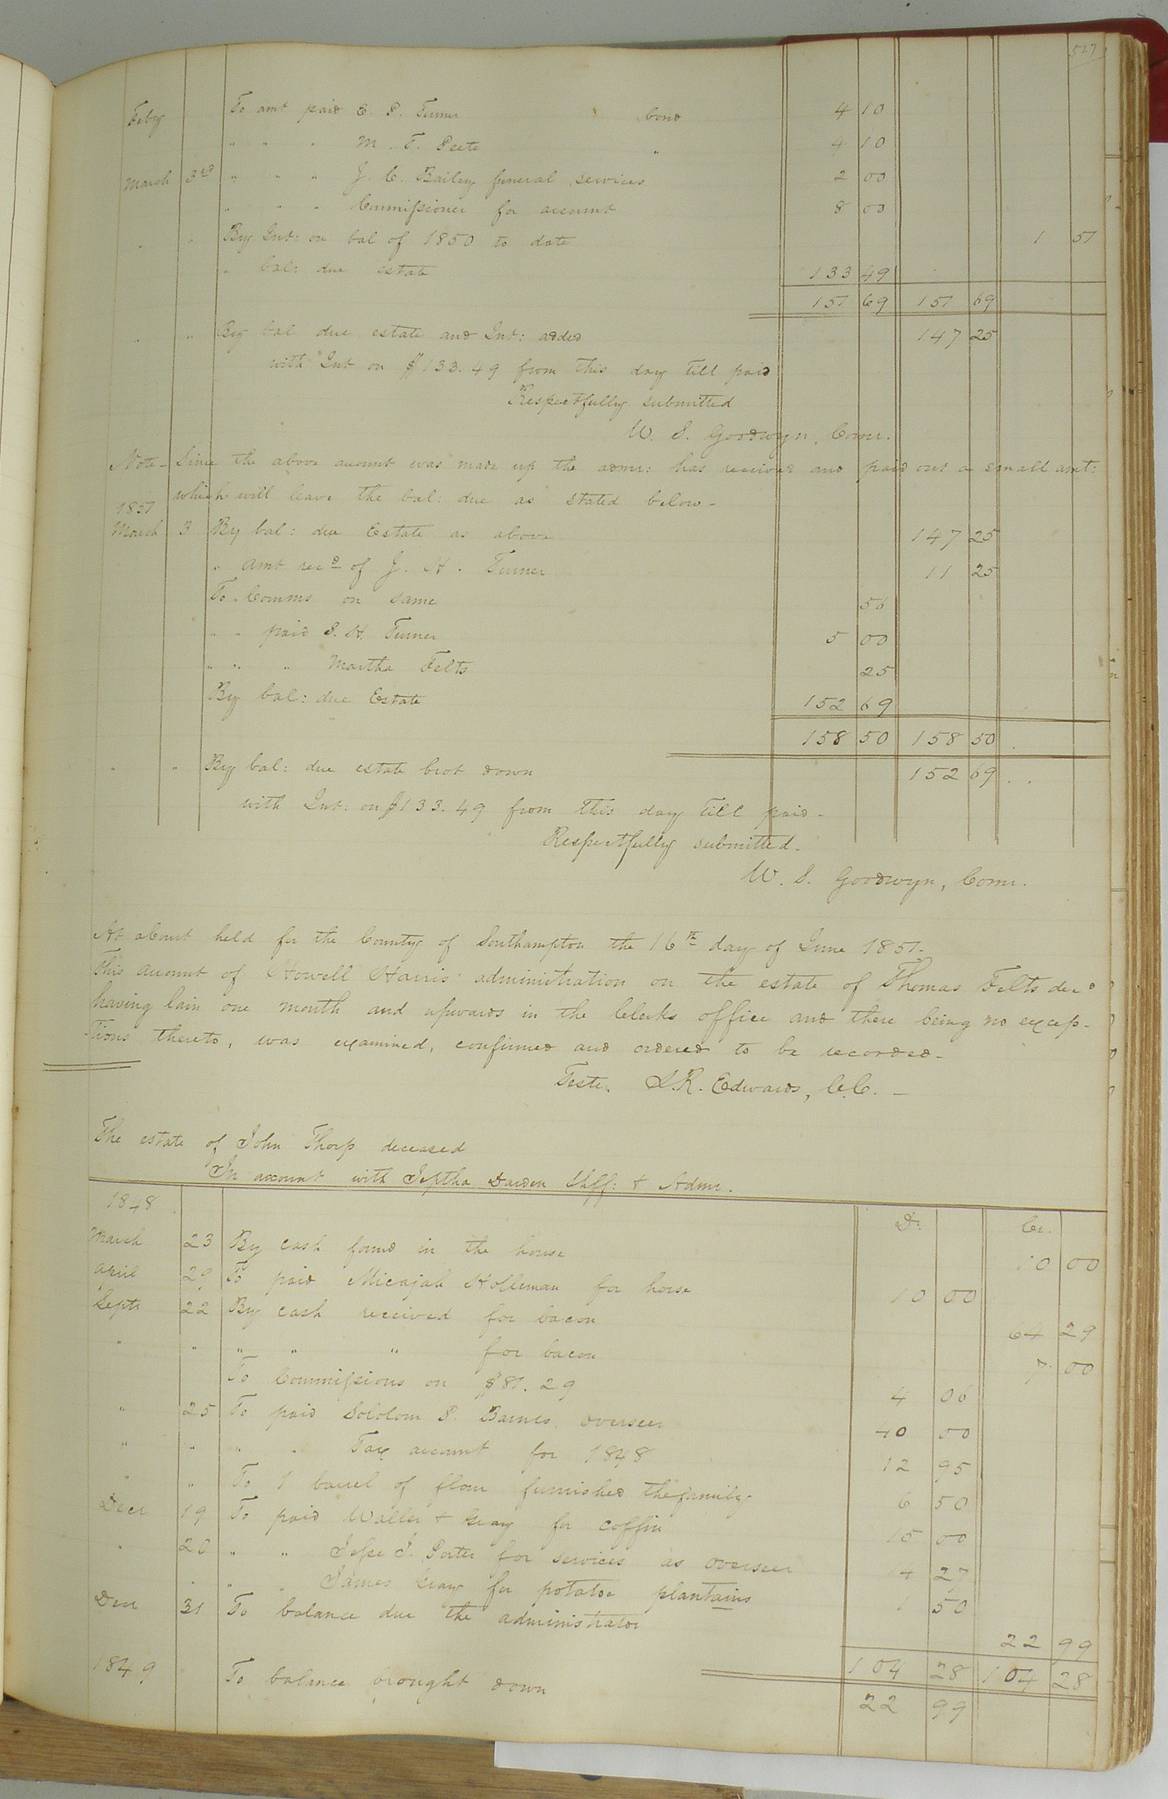 527
Feby To amt paid E. P. Turner bond 4 10
" " " M. T. Peete " 4 10
March 3rd " " " J. C. Bailey funeral services 2 00
" " " Commissioner for account 8 00
" " By Int: on bal of 1850 to date 1 51
" bal: due estate 133 49
151 69 151 69
" " By bal due estate and Int: added 147 25
with Int on $133.49 from this day till paid
Respectfully submitted
W. S. Goodwyn, Comr.
Note - Since the above amount was made up the admr: has received and paid out a small amt:
which will leave the bal: due as stated below -
1851
March 3 By bal: due Estate as above 147 25
" amt recd of J. H. Turner 11 25
To Comms on same 56
" " paid S. H. Turner 5 00
" " " Martha Felts 25
By bal: due Estate 152 69
158 50 158 50
" " By bal: due estate brot down 152 69
with Int: on $133.49 from this day till paid -
Respectfully submitted.
W. S. Goodwyn, Comr.
At a Court held for the County of Southampton the 16th day of June 1851 -
This account of Howell Harris' administration on the estate of Thomas Felts decd
having lain one month and upwards in the Clerks office and there being no excep-
tions thereto, was examined, confirmed and ordered to be recorded -
Teste. L. R. Edwards, C.C. -
The estate of John Thorp deceased
In account with Jeptha Darden Shff: & Admr.
1848 Dr. Cr.
March 23 By cash found in the house 10 00
April 29 To paid Micajah Holleman for horse 10 00
Septr 22 By cash received for bacon 64 29
" " " " " for bacon 7 00
To Commissions on $81.29 4 06
" 25 To paid Sololom P. Barnes overseer 40 00
" " " " Tax account for 1848 12 95
" " To 1 barrel of flour furnished the family 6 50
Decr 19 To paid Waller & Gray for coffin 15 00
" 20 " " Jesse J. Porter for services as overseer 14 27
" " " James Gray for potatoe plantains 1 50
Decr 31 To balance due the administrator 22 99
104 28 104 28
1849 To balance brought down 22 99